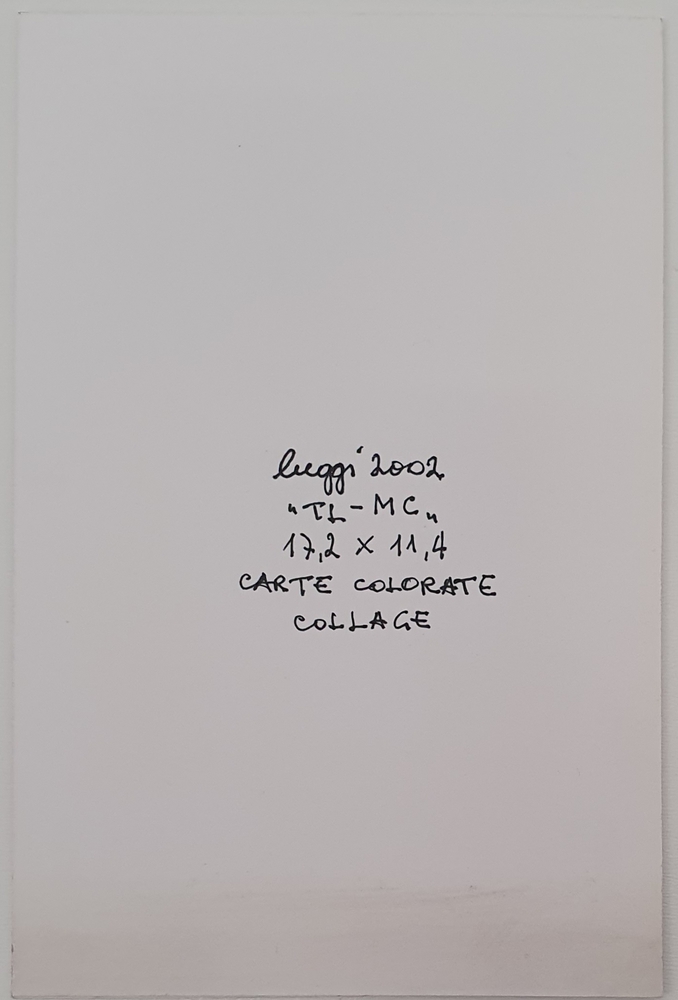 luggi '2002
"TL-MC"
17,2 X 11,4
CARTE COLORATE
COLLAGE